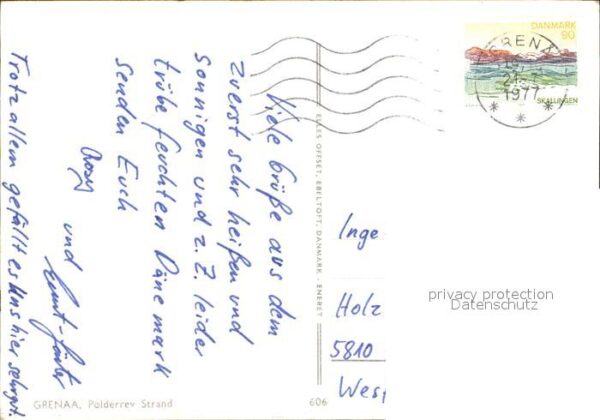 Viele Grüße aus dem
zuerst sehr heißen und
sonnigen und z. Z. leider
trübe feuchten Dänemark
senden Euch
und
Trotz allem gefällt es uns hier sehr gut
GRENAA, Polderrev Strand
606
ELLES OFFSET, EBELTOFT, DANMARK - ENERET
DANMARK
90
SKALLINGEN
GRENA
1977
Inge
Holz
5810
West
privacy protection
Datenschutz